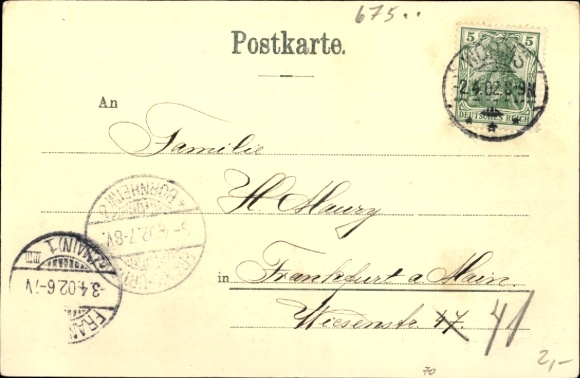 675..
Postkarte.
5 5
WORMS
-2.4.02.8-9N.
DEUTSCHES REICH
An
Familie
H Maury
BORNHEIM
3.4.02.7-8V.
FRANKFURT
(MAIN) 1
3.4.02.6-7V
FRAN
in Frankfurt a. Main.
Wiesenstr. 47. 41
70
2,-